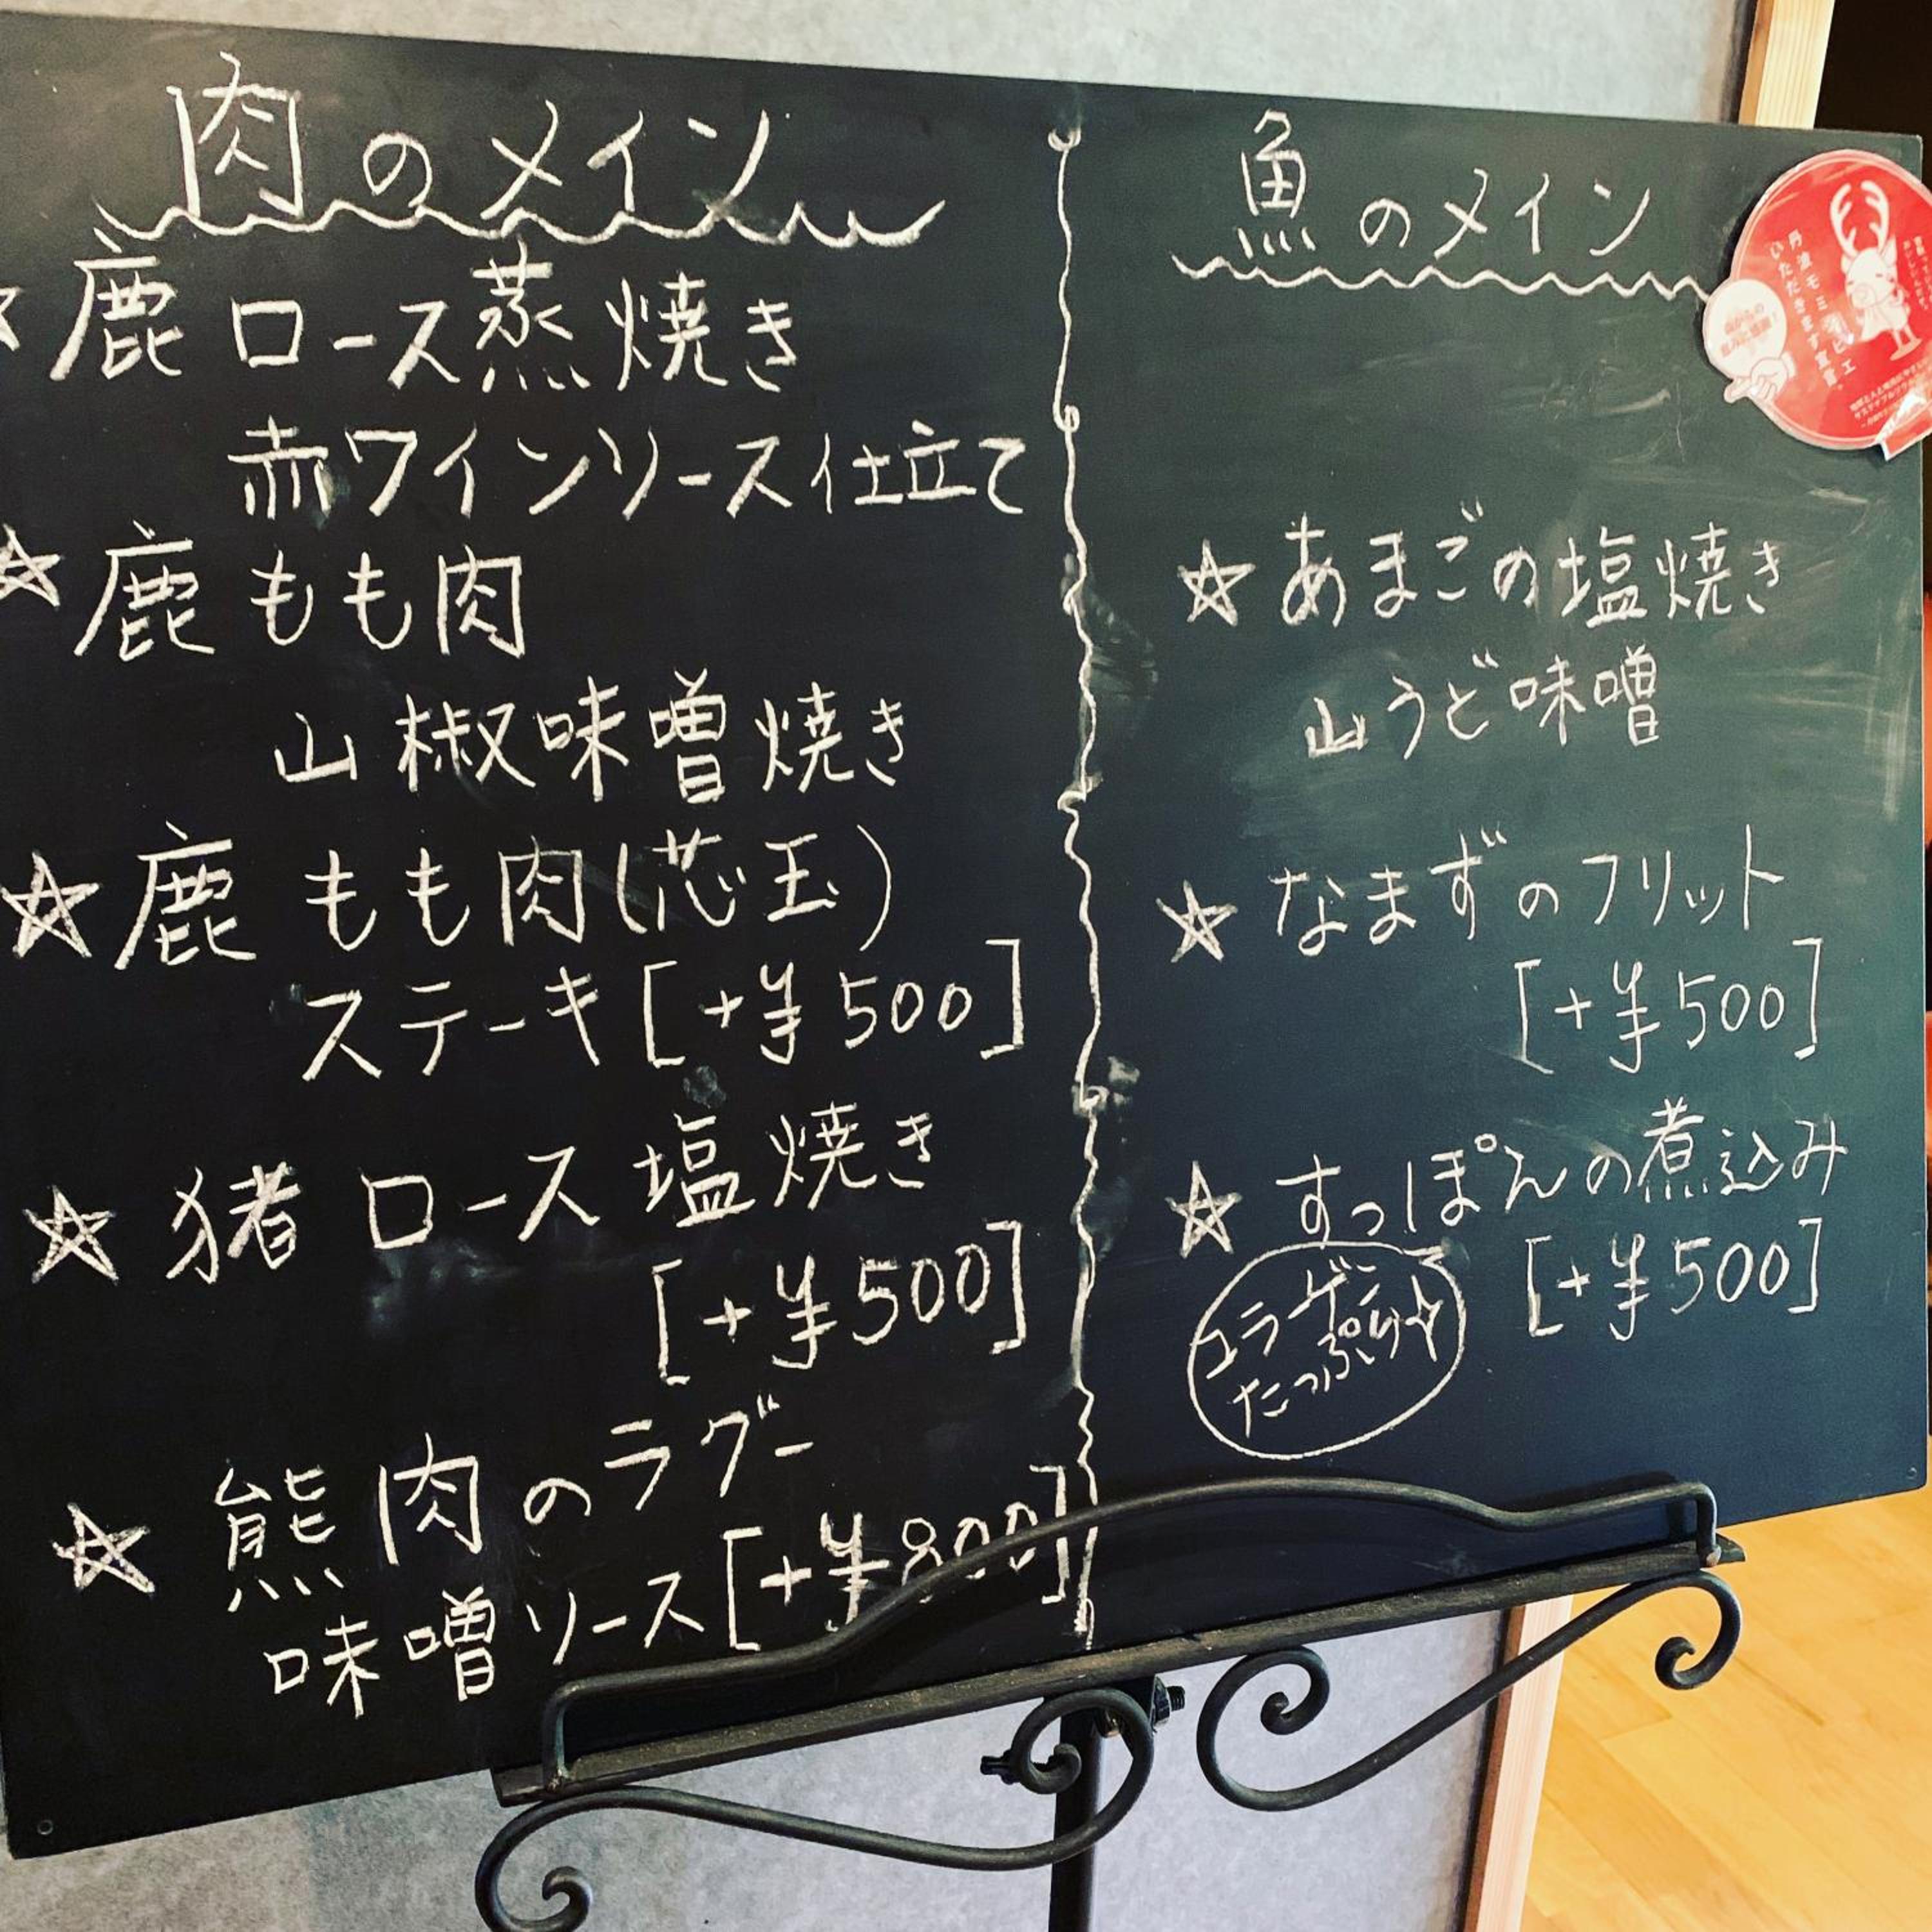 肉のメイン
☆鹿ロース蒸焼き
赤ワインソース仕立て
☆鹿もも肉
山椒味噌焼き
☆鹿もも肉(芯玉)
ステーキ[+¥500]
☆猪ロース塩焼き
[+¥500]
☆熊肉のラグー
味噌ソース[+¥800]
魚のメイン
☆あまごの塩焼き
山うど味噌
☆なまずのフリット
[+¥500]
☆すっぽんの煮込み
[+¥500]
コラーゲン
たっぷり☆
丹波モミジビエ
いただきます宣言。